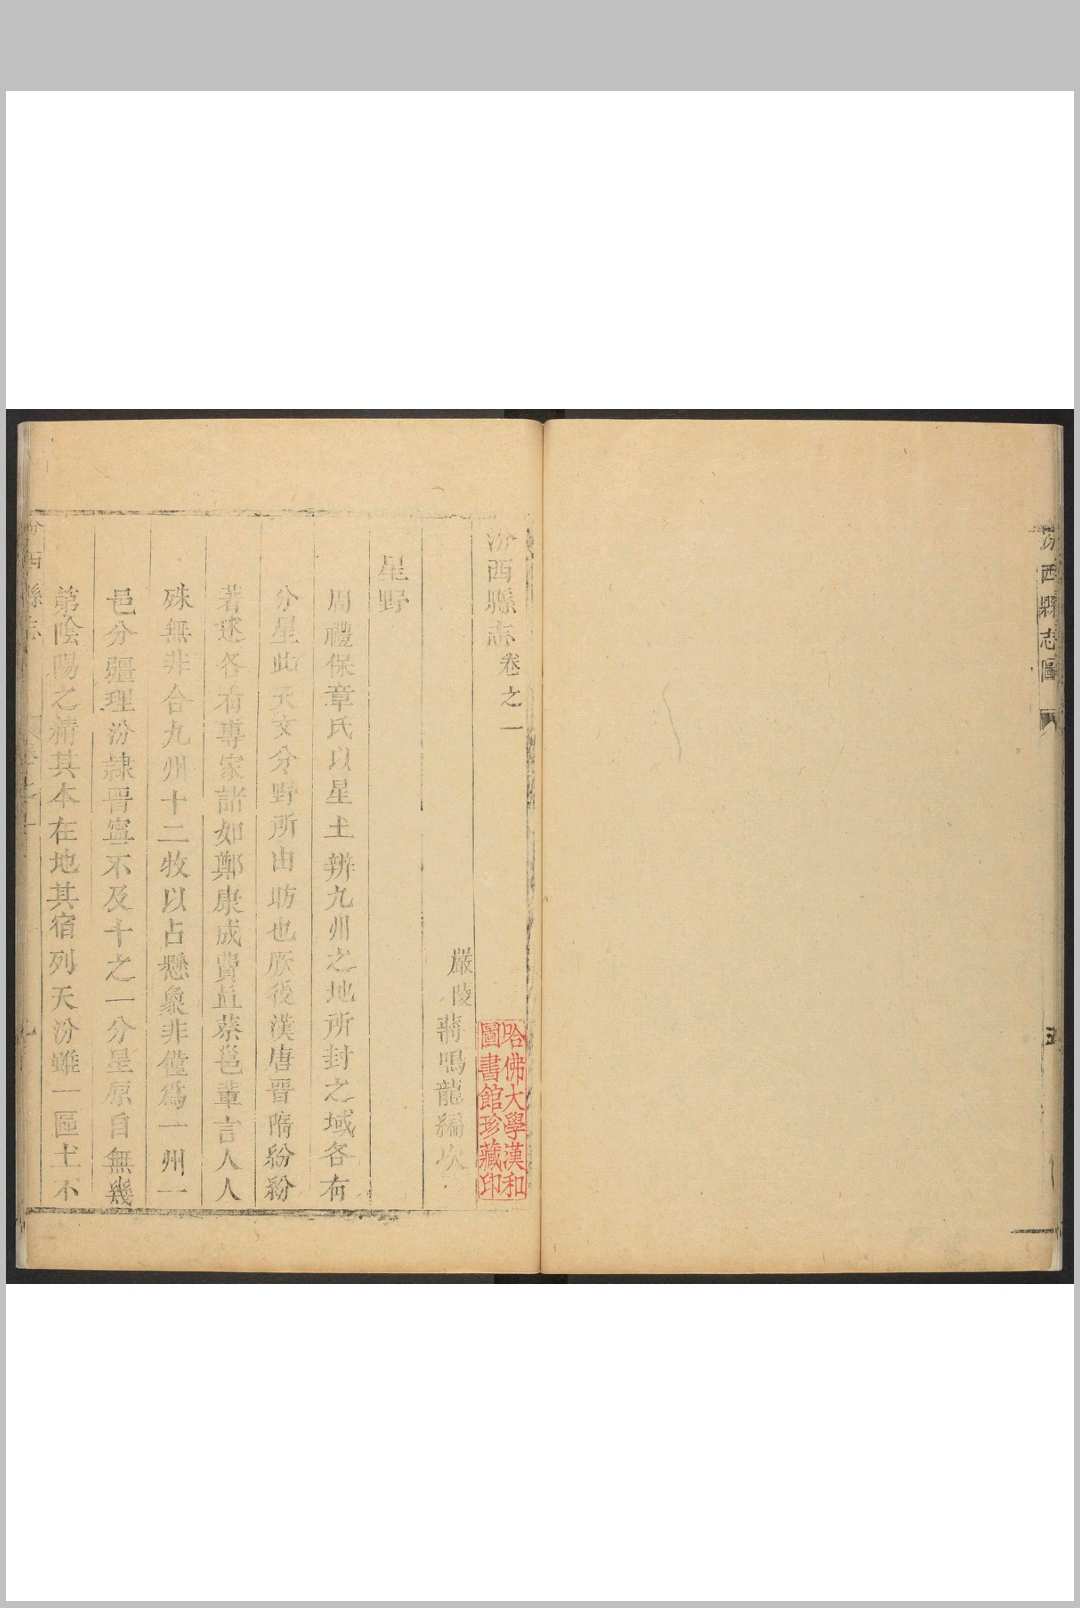 汾西縣志圖
五
汾西縣志卷之一
嚴陵蔣鳴龍編次
哈佛大學漢和
圖書館珍藏印
星野
周禮保章氏以星土辨九州之地所封之域各有
分星此天文分野所由昉也厥後漢唐晉隋紛紛
著述各有專家諸如鄭康成費直蔡邕輩言人人
殊無非合九州十二牧以占懸象非僅爲一州一
邑分疆理汾隷晋寧不及十之一分星原自無幾
第陰陽之精其本在地其宿列天汾雖一區土不
汾西縣志
卷之一